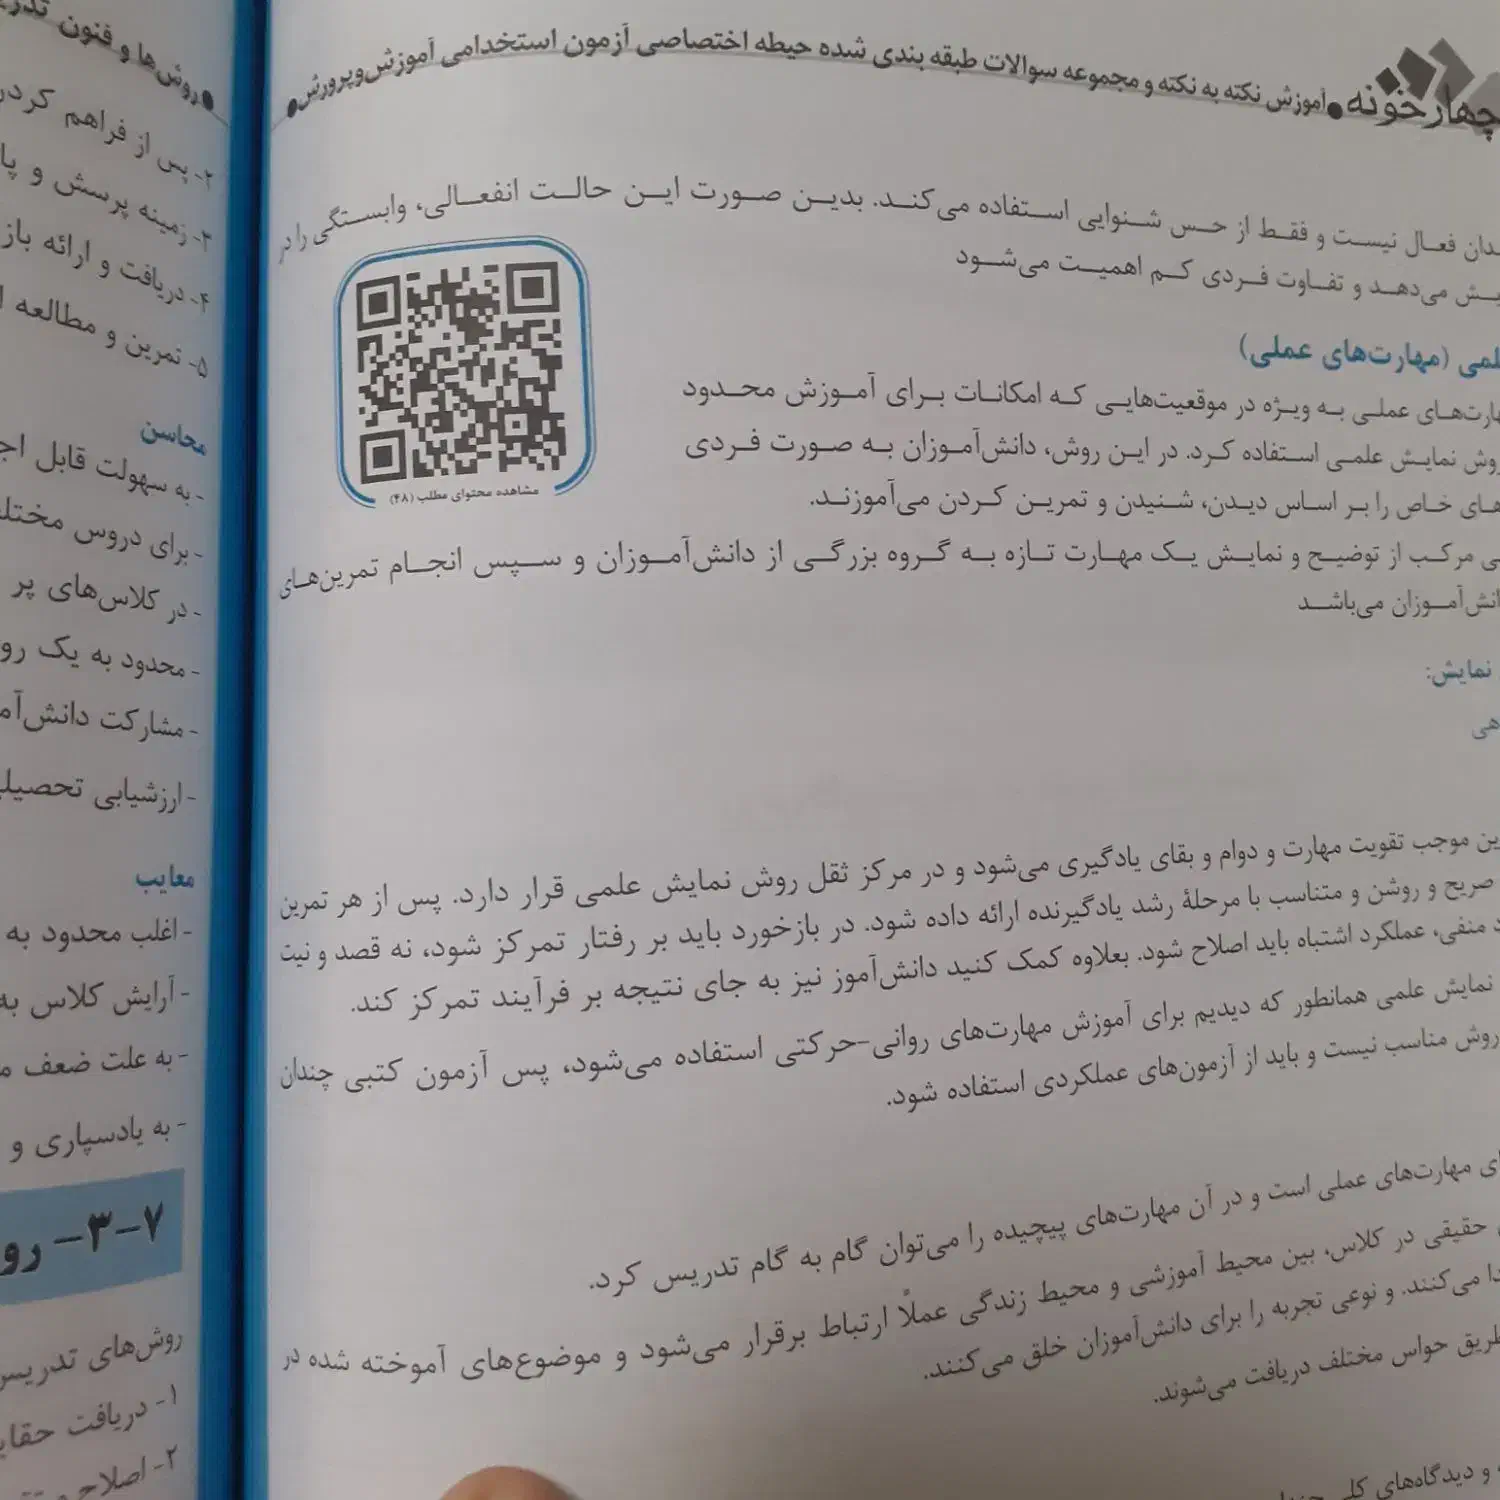 چهارخونه • آموزش نکته به نکته و مجموعه سوالات طبقه بندی شده حیطه اختصاصی آزمون استخدامی آموزش‌وپرورش •
فعال نیست و فقط از حس شنوایی استفاده می‌کند. بدین صورت این حالت انفعالی، وابستگی را در
می‌دهد و تفاوت فردی کم اهمیت می‌شود
(مهارت‌های عملی)
عملی به ویژه در موقعیت‌هایی که امکانات برای آموزش محدود
نمایش علمی استفاده کرد. در این روش، دانش‌آموزان به صورت فردی
خاص را بر اساس دیدن، شنیدن و تمرین کردن می‌آموزند.
مرکب از توضیح و نمایش یک مهارت تازه به گروه بزرگی از دانش‌آموزان و سپس انجام تمرین‌های
می‌باشد
نمایش:
مشاهده محتوای مطلب (۴۸)
موجب تقویت مهارت و دوام و بقای یادگیری می‌شود و در مرکز ثقل روش نمایش علمی قرار دارد. پس از هر تمرین
صریح و روشن و متناسب با مرحلهٔ رشد یادگیرنده ارائه داده شود. در بازخورد باید بر رفتار تمرکز شود، نه قصد و نیت
منفی، عملکرد اشتباه باید اصلاح شود. بعلاوه کمک کنید دانش‌آموز نیز به جای نتیجه بر فرآیند تمرکز کند.
نمایش علمی همانطور که دیدیم برای آموزش مهارت‌های روانی-حرکتی استفاده می‌شود، پس آزمون کتبی چندان
روش مناسب نیست و باید از آزمون‌های عملکردی استفاده شود.
مهارت‌های عملی است و در آن مهارت‌های پیچیده را می‌توان گام به گام تدریس کرد.
حقیقی در کلاس، بین محیط آموزشی و محیط زندگی عملاً ارتباط برقرار می‌شود و موضوع‌های آموخته شده در
می‌کنند. و نوعی تجربه را برای دانش‌آموزان خلق می‌کنند.
طریق حواس مختلف دریافت می‌شوند.
و دیدگاه‌های کلی
• روش‌ها و فنون
۲- پس از فراهم کردن
۳- زمینه پرسش و
۴- دریافت و ارائه
۵- تمرین و مطالعه
محاسن
- به سهولت قابل
- برای دروس
- در کلاس‌های پر
- محدود به یک
- مشارکت
- ارزشیابی
معایب
- اغلب محدود به
- آرایش کلاس به
- به علت ضعف
- به یادسپاری و
۷-۳-
روش‌های تدریس
۱- دریافت
۲- اصلاح و